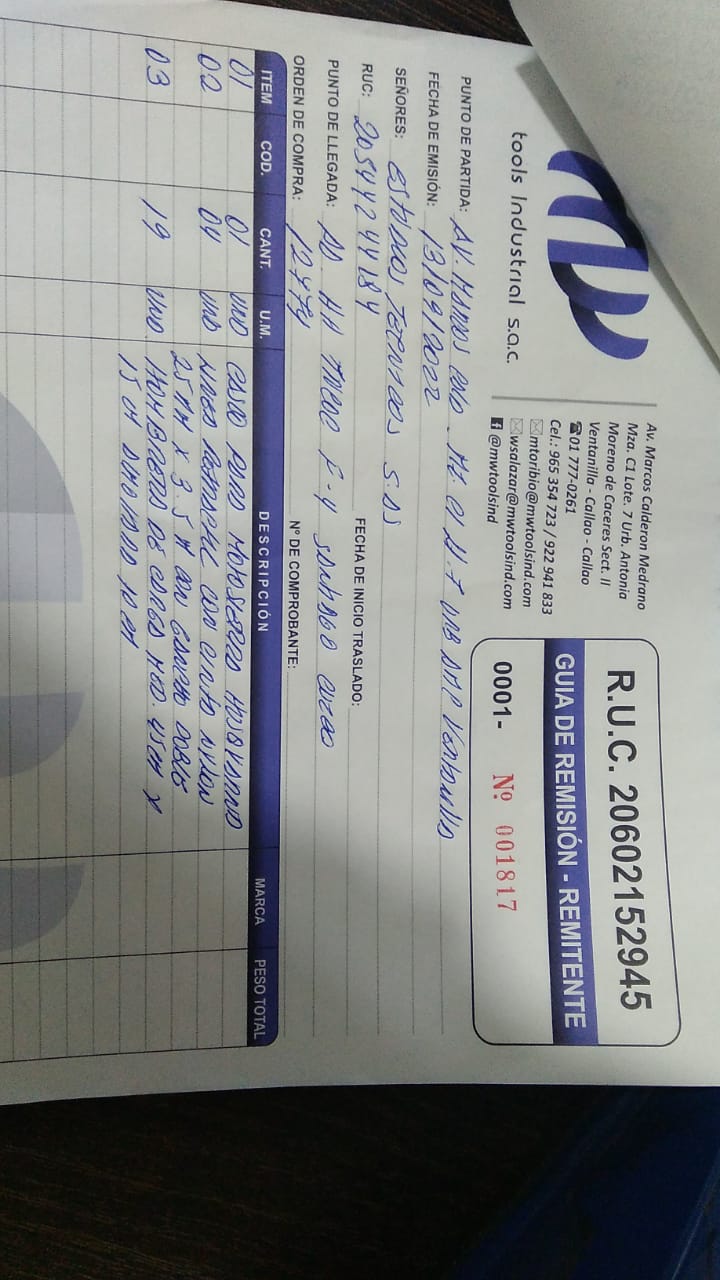 tools Industrial s.a.c.
Av. Marcos Calderon Medrano
Mza. C1 Lote. 7 Urb. Antonia
Moreno de Caceres Sect. II
Ventanilla - Callao - Callao
☎01 777-0261
Cel.: 965 354 723 / 922 941 833
✉mtoribio@mwtoolsind.com
✉wsalazar@mwtoolsind.com
@mwtoolsind
R.U.C. 20602152945
GUIA DE REMISIÓN - REMITENTE
0001- Nº 001817
PUNTO DE PARTIDA: AV. MARCOS MZ. C1 LT. 7 URB
FECHA DE EMISIÓN: 13/09/2022
SEÑORES: ESTUDIOS TECNICOS SAS
RUC: 20544244184 FECHA DE INICIO TRASLADO:
PUNTO DE LLEGADA: F-4 SANTIAGO CUZCO
ORDEN DE COMPRA: 12474 Nº DE COMPROBANTE:
ITEM COD. CANT. U.M. DESCRIPCIÓN MARCA PESO TOTAL
01 01 UND PARA
02 04 UND CON CINTA NYLON
25 MM X 3.5 M CON GANCHO DOBLE
03 19 UND HOMBRERA DE CARGA MED. 45 CM X
15 CM